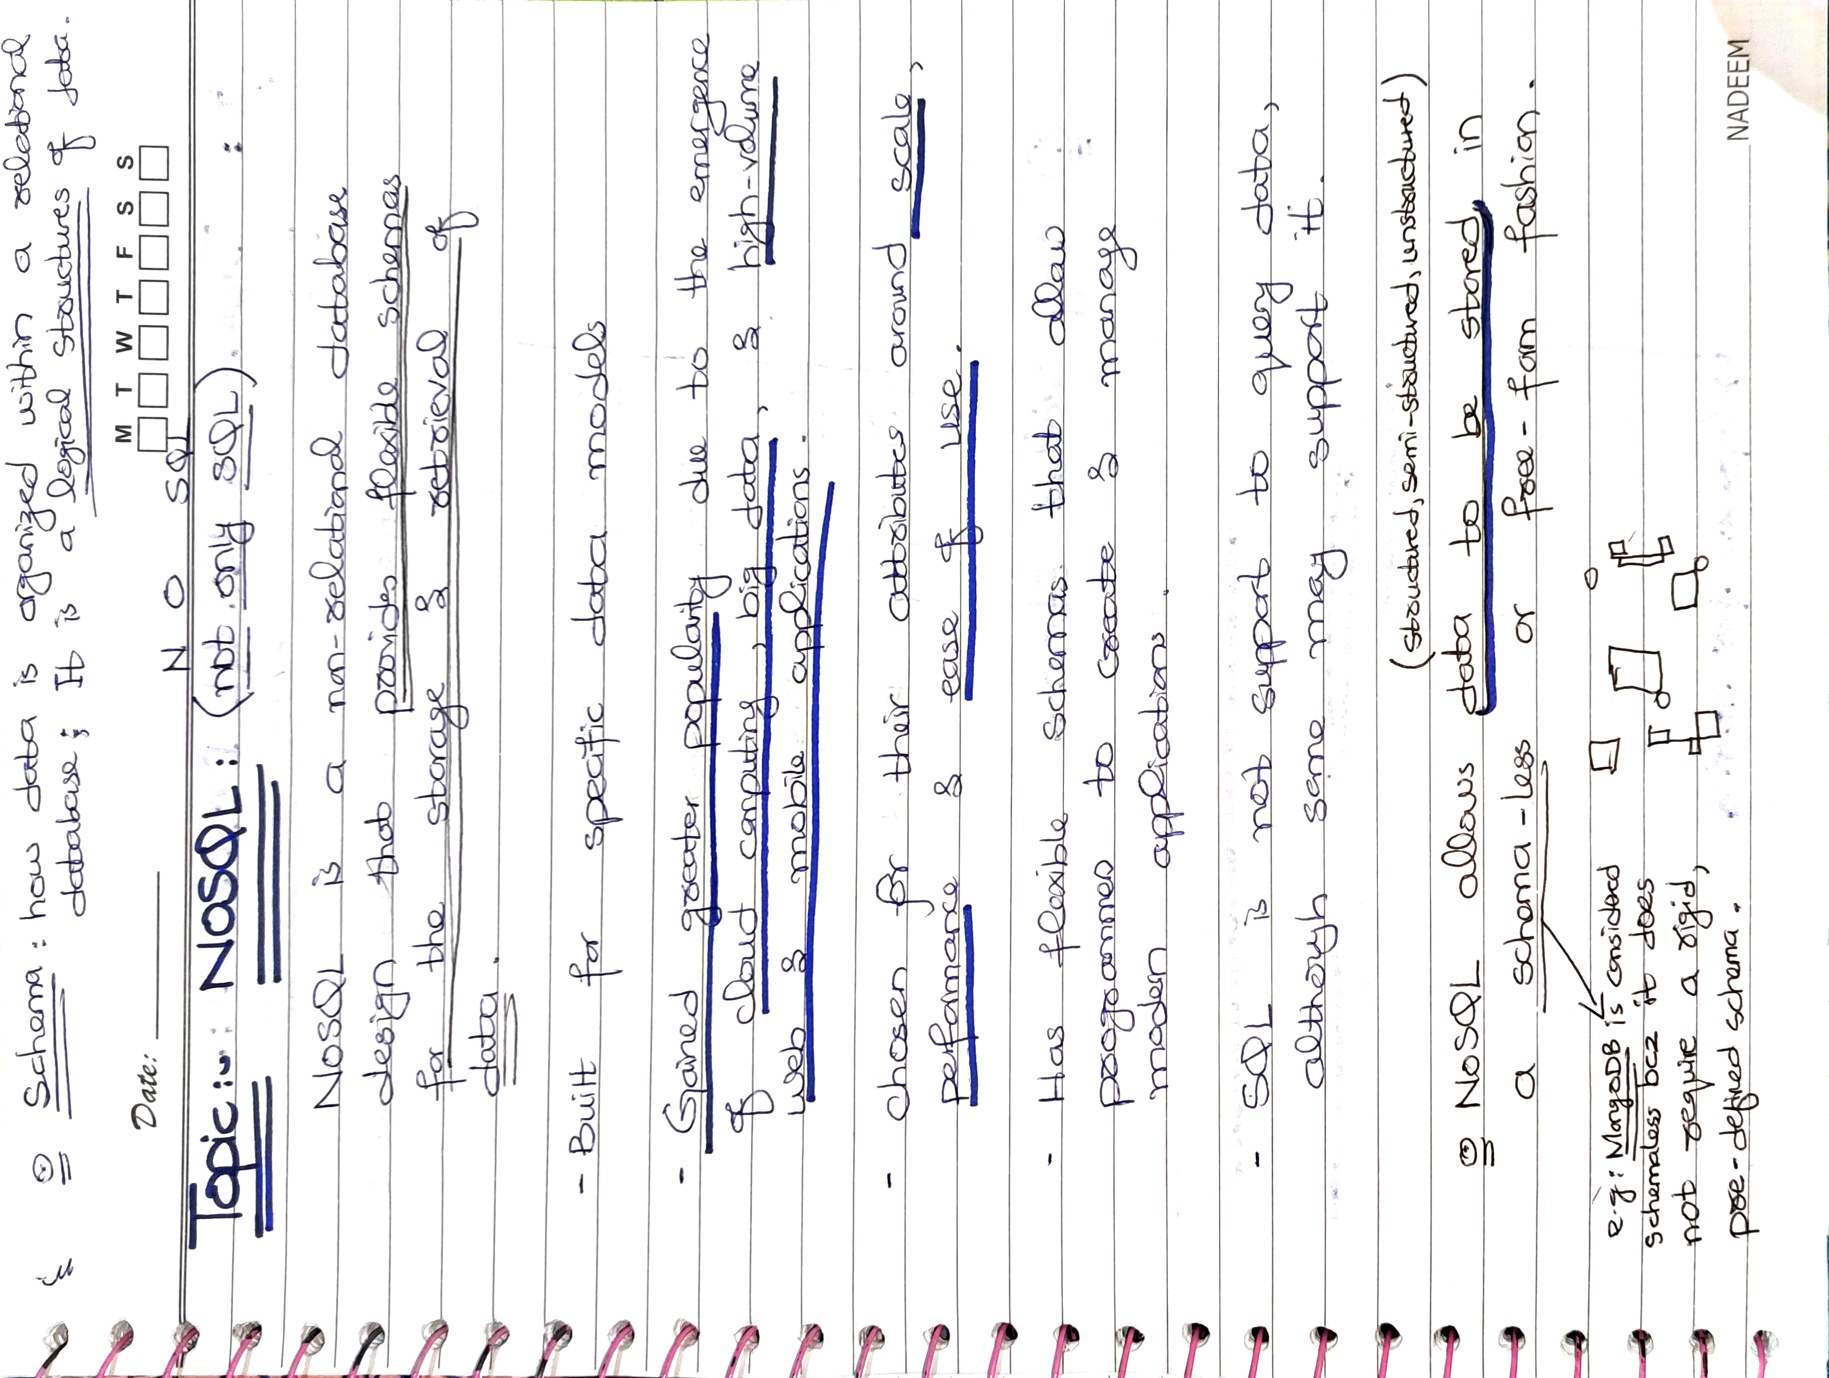 ☺ Schema : how data is organized within a relational
database ; It is a logical structures of data.
Date:
M T W T F S S
N O SQL
Topic :- NoSQL : (not only SQL).
NoSQL is a non-relational database
design that provides flexible schemas
for the storage & retrieval of
data.
- Built for specific data models
- Gained greater popularity due to the emergence
of cloud computing, big data, & high-volume
web & mobile applications.
- Chosen for their attributes around scale,
performance & ease of use.
- Has flexible schemas that allow
programmers to create & manage
modern applications.
- SQL is not support to query data,
although some may support it.
(structured, semi-structured, unstructured)
☺ NoSQL allows data to be stored in
a schema-less or free-form fashion.
e.g : MongoDB is considered
schemaless bcz it does
not require a rigid,
pre-defined schema.
NADEEM